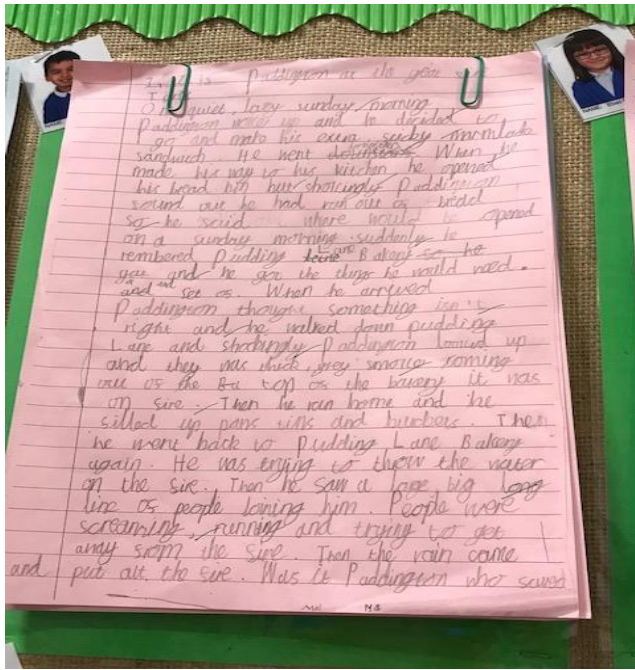 is Paddington at the year
One quiet, lazy sunday morning
Paddington up and he decided to
go and make his extra mrmlade
sandwich. He went When he
made his way to his kitchen he opened
his bread bin but shorcingly Paddington
sound out he had run out os bread
so he said where would be opened
on a sunday morning. suddenly he
rembered Pudding Lane Bakery so he
got and he got the things he would need.
and set os. When he arrived
Paddington thought something isn't
right and he walked down pudding
Lane and shockingly Paddington looked up
and they was thick, grey smoke coming
out os the Ba top os the bakery it was
on sire. Then he ran home and he
silled up pans tins and buckets. Then
he went back to Pudding Lane Bakery
again. He was trying to throw the water
on the sire. Then he saw a large big long
line os people loining him. People were
screaming, running and trying to get
away srom the sire. Then the rain came
and put alt the sire. Was it Paddington who saved